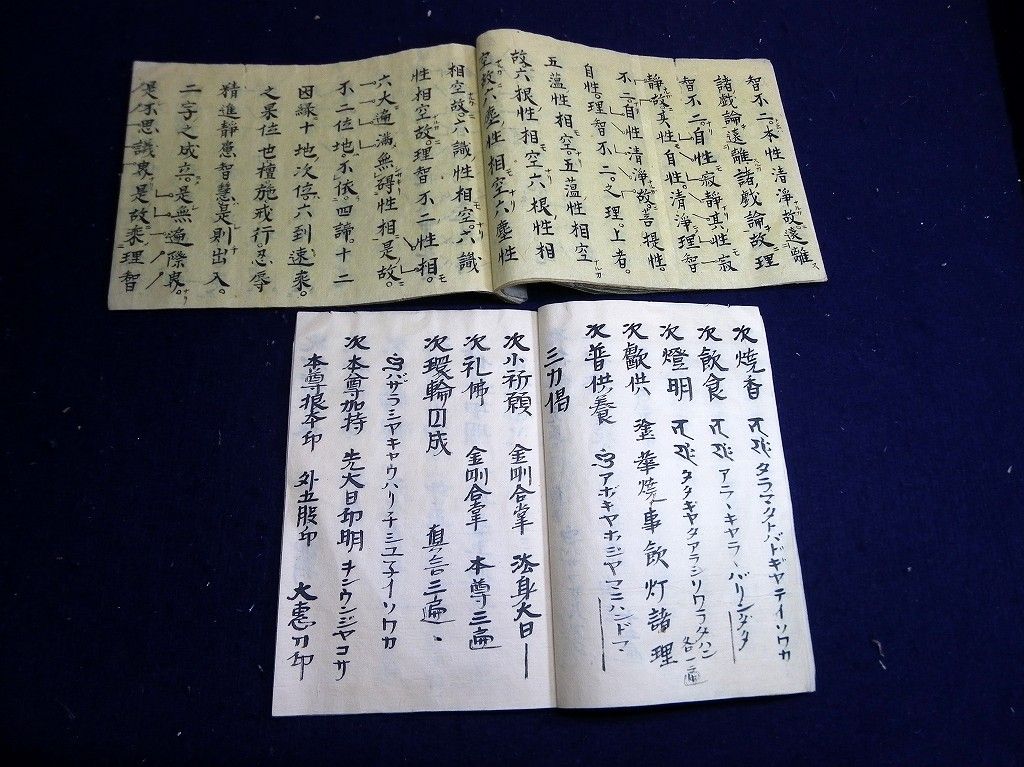 智不二。本性清淨故。遠離
諸戲論。遠離諸戲論故。理
智不二。自性寂靜。其性寂
靜故。其性自性清淨。理智
不二。自性清淨故。菩提性。
自性。理智不二。之理。上者。
五蘊性相空。五蘊性相空
故。六根性相空。六根性相
空故。六塵性相空。六塵性
相空故。六識性相空。六識
性相空故。理智不二性相。
六大遍滿。無碍性相。是故。
不二位地。不依。四諦。十二
因緣十地。次位。六到速来。
之果位也。檀施戒行。忍辱
精進靜慮智慧。是則出入。
二字之成立。是無邊際界。
是不思議界。是故。来理智
次燒香 タラマタトバドギヤテイソワカ
次飲食 アラヽキヤラヽバリンダタ
次燈明 タタギヤタアラシソワラタハン 各一遍
次献供 塗華燒事飲灯諸理
次普供養 アボキヤホジヤマニハンドマ
三力偈
次小祈願 金剛合掌 法身大日
次礼佛 金剛合掌 本尊三遍
次環輪囚成 真言三遍、
バザラシヤキヤウハリチシユチイソワカ
次本尊加持 先大日印明 チンウンジヤコサ
本尊根本印 外五股印 大惠刀印